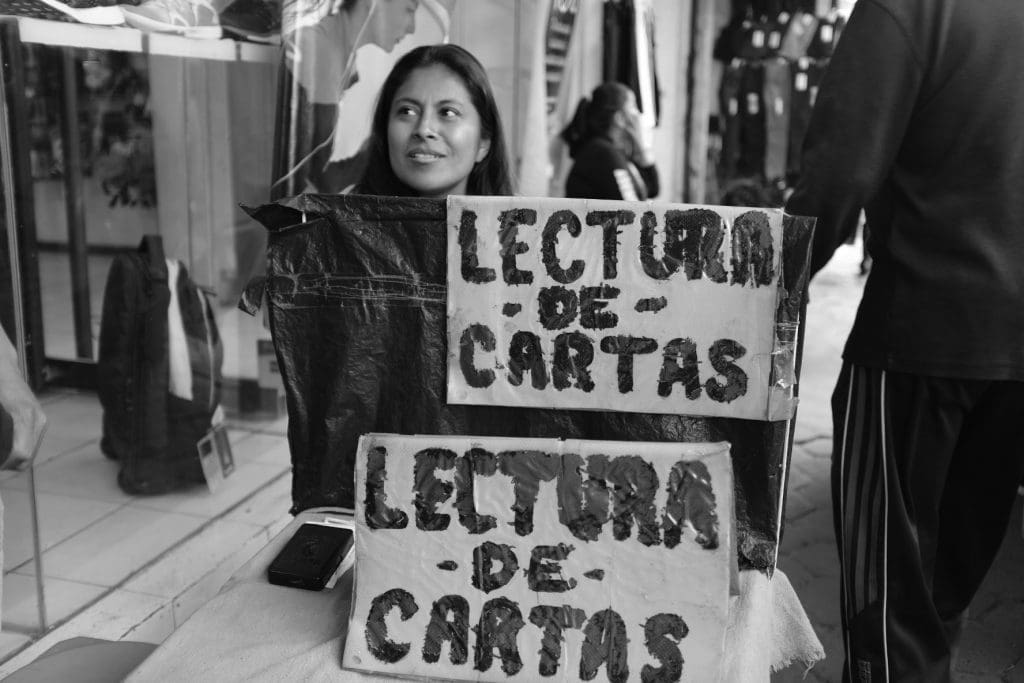 LECTURA
- DE -
CARTAS
LECTURA
- DE -
CARTAS